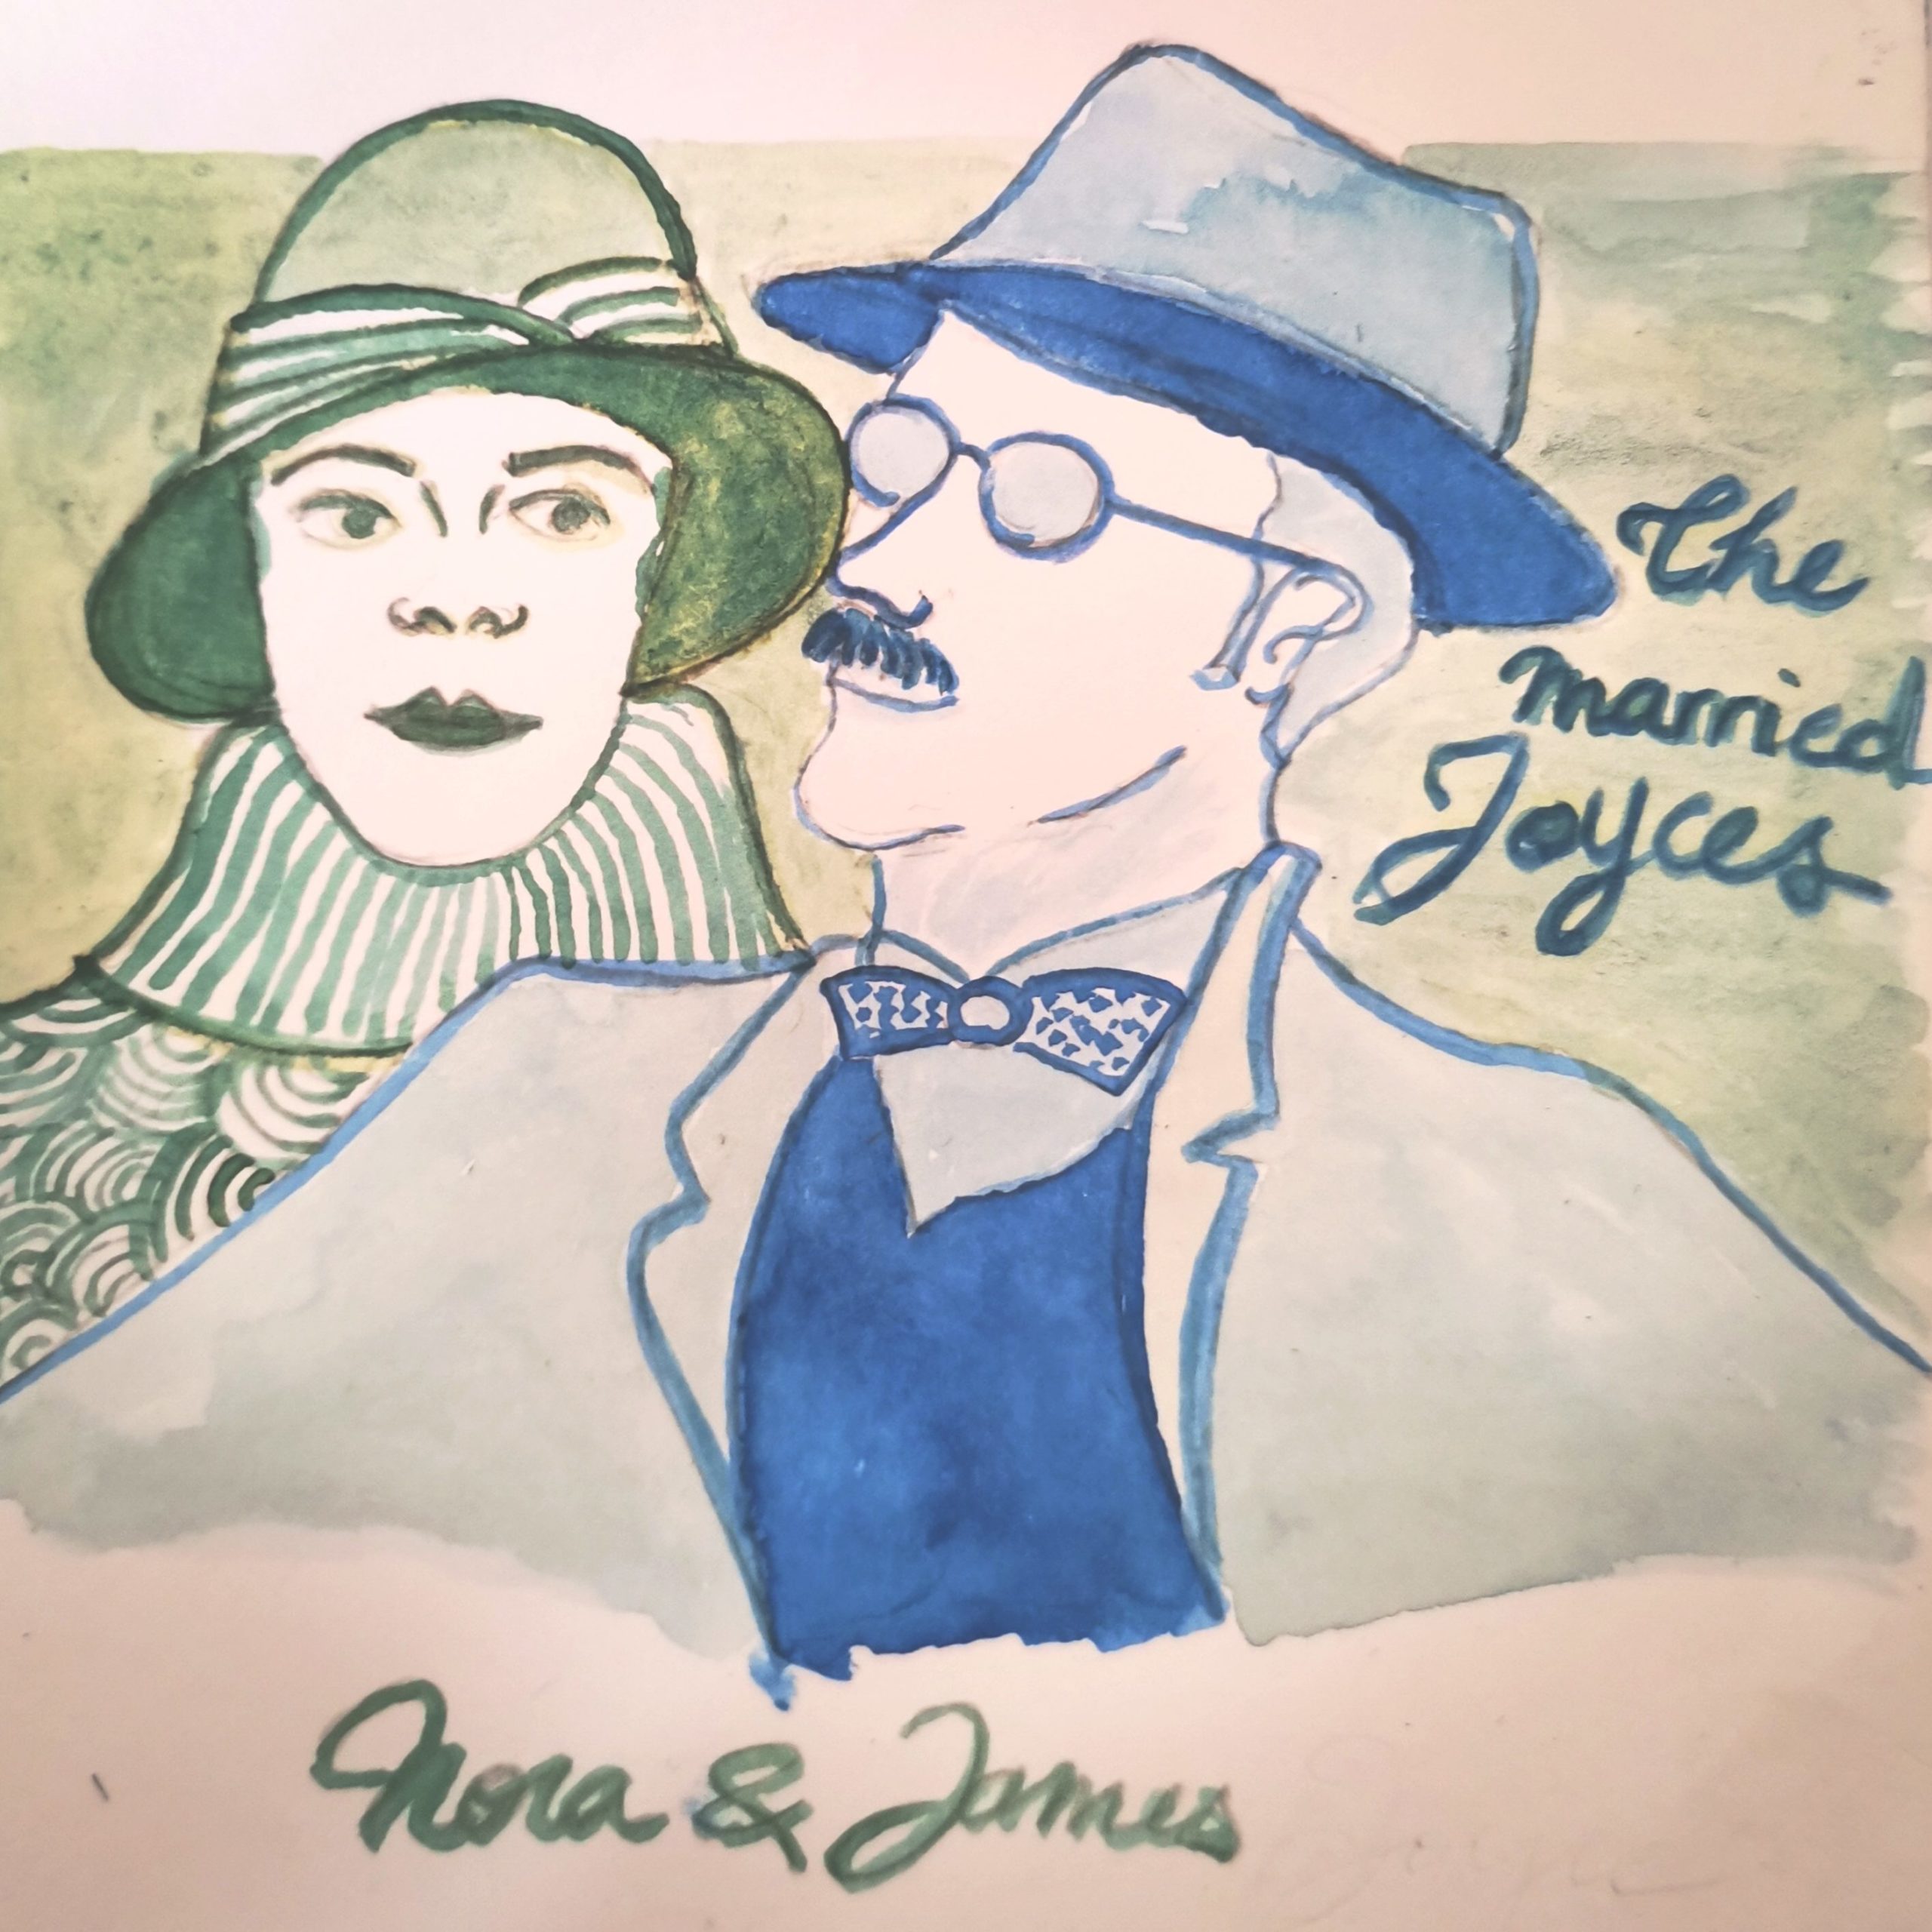 The
married
Joyces
Nora & James